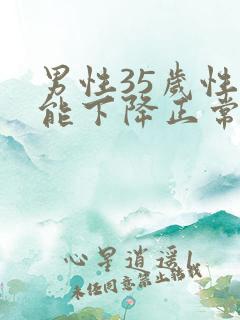 男性35歲性
能下降正常
心星逍遥|
未任同意禁止转载